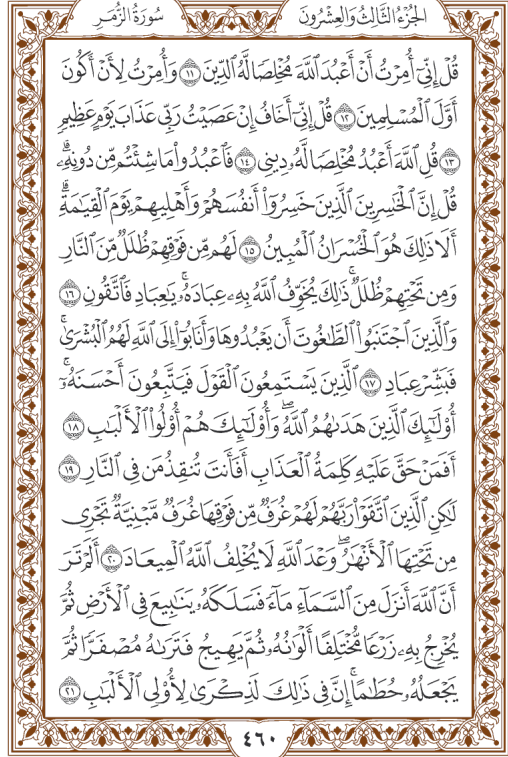 الجُزْءُ الثَّالِثُ وَالعِشْرُونَ سُورَةُ الزُّمَرِ
قُلْ إِنِّيٓ أُمِرْتُ أَنْ أَعْبُدَ ٱللَّهَ مُخْلِصًا لَّهُ ٱلدِّينَ ١١ وَأُمِرْتُ لِأَنْ أَكُونَ
أَوَّلَ ٱلْمُسْلِمِينَ ١٢ قُلْ إِنِّيٓ أَخَافُ إِنْ عَصَيْتُ رَبِّي عَذَابَ يَوْمٍ عَظِيمٍ
١٣ قُلِ ٱللَّهَ أَعْبُدُ مُخْلِصًا لَّهُۥ دِينِي ١٤ فَٱعْبُدُوا۟ مَا شِئْتُم مِّن دُونِهِۦۗ
قُلْ إِنَّ ٱلْخَٰسِرِينَ ٱلَّذِينَ خَسِرُوٓا۟ أَنفُسَهُمْ وَأَهْلِيهِمْ يَوْمَ ٱلْقِيَٰمَةِۗ
أَلَا ذَٰلِكَ هُوَ ٱلْخُسْرَانُ ٱلْمُبِينُ ١٥ لَهُم مِّن فَوْقِهِمْ ظُلَلٌ مِّنَ ٱلنَّارِ
وَمِن تَحْتِهِمْ ظُلَلٌۚ ذَٰلِكَ يُخَوِّفُ ٱللَّهُ بِهِۦ عِبَادَهُۥۚ يَٰعِبَادِ فَٱتَّقُونِ ١٦
وَٱلَّذِينَ ٱجْتَنَبُوا۟ ٱلطَّٰغُوتَ أَن يَعْبُدُوهَا وَأَنَابُوٓا۟ إِلَى ٱللَّهِ لَهُمُ ٱلْبُشْرَىٰۚ
فَبَشِّرْ عِبَادِ ١٧ ٱلَّذِينَ يَسْتَمِعُونَ ٱلْقَوْلَ فَيَتَّبِعُونَ أَحْسَنَهُۥٓۚ
أُو۟لَٰٓئِكَ ٱلَّذِينَ هَدَىٰهُمُ ٱللَّهُۖ وَأُو۟لَٰٓئِكَ هُمْ أُو۟لُوا۟ ٱلْأَلْبَٰبِ ١٨
أَفَمَنْ حَقَّ عَلَيْهِ كَلِمَةُ ٱلْعَذَابِ أَفَأَنتَ تُنقِذُ مَن فِي ٱلنَّارِ ١٩
لَٰكِنِ ٱلَّذِينَ ٱتَّقَوْا۟ رَبَّهُمْ لَهُمْ غُرَفٌ مِّن فَوْقِهَا غُرَفٌ مَّبْنِيَّةٌ تَجْرِي
مِن تَحْتِهَا ٱلْأَنْهَٰرُۖ وَعْدَ ٱللَّهِ لَا يُخْلِفُ ٱللَّهُ ٱلْمِيعَادَ ٢٠ أَلَمْ تَرَ
أَنَّ ٱللَّهَ أَنزَلَ مِنَ ٱلسَّمَآءِ مَآءً فَسَلَكَهُۥ يَنَٰبِيعَ فِي ٱلْأَرْضِ ثُمَّ
يُخْرِجُ بِهِۦ زَرْعًا مُّخْتَلِفًا أَلْوَٰنُهُۥ ثُمَّ يَهِيجُ فَتَرَىٰهُ مُصْفَرًّا ثُمَّ
يَجْعَلُهُۥ حُطَٰمًاۚ إِنَّ فِي ذَٰلِكَ لَذِكْرَىٰ لِأُو۟لِي ٱلْأَلْبَٰبِ ٢١
٤٦٠